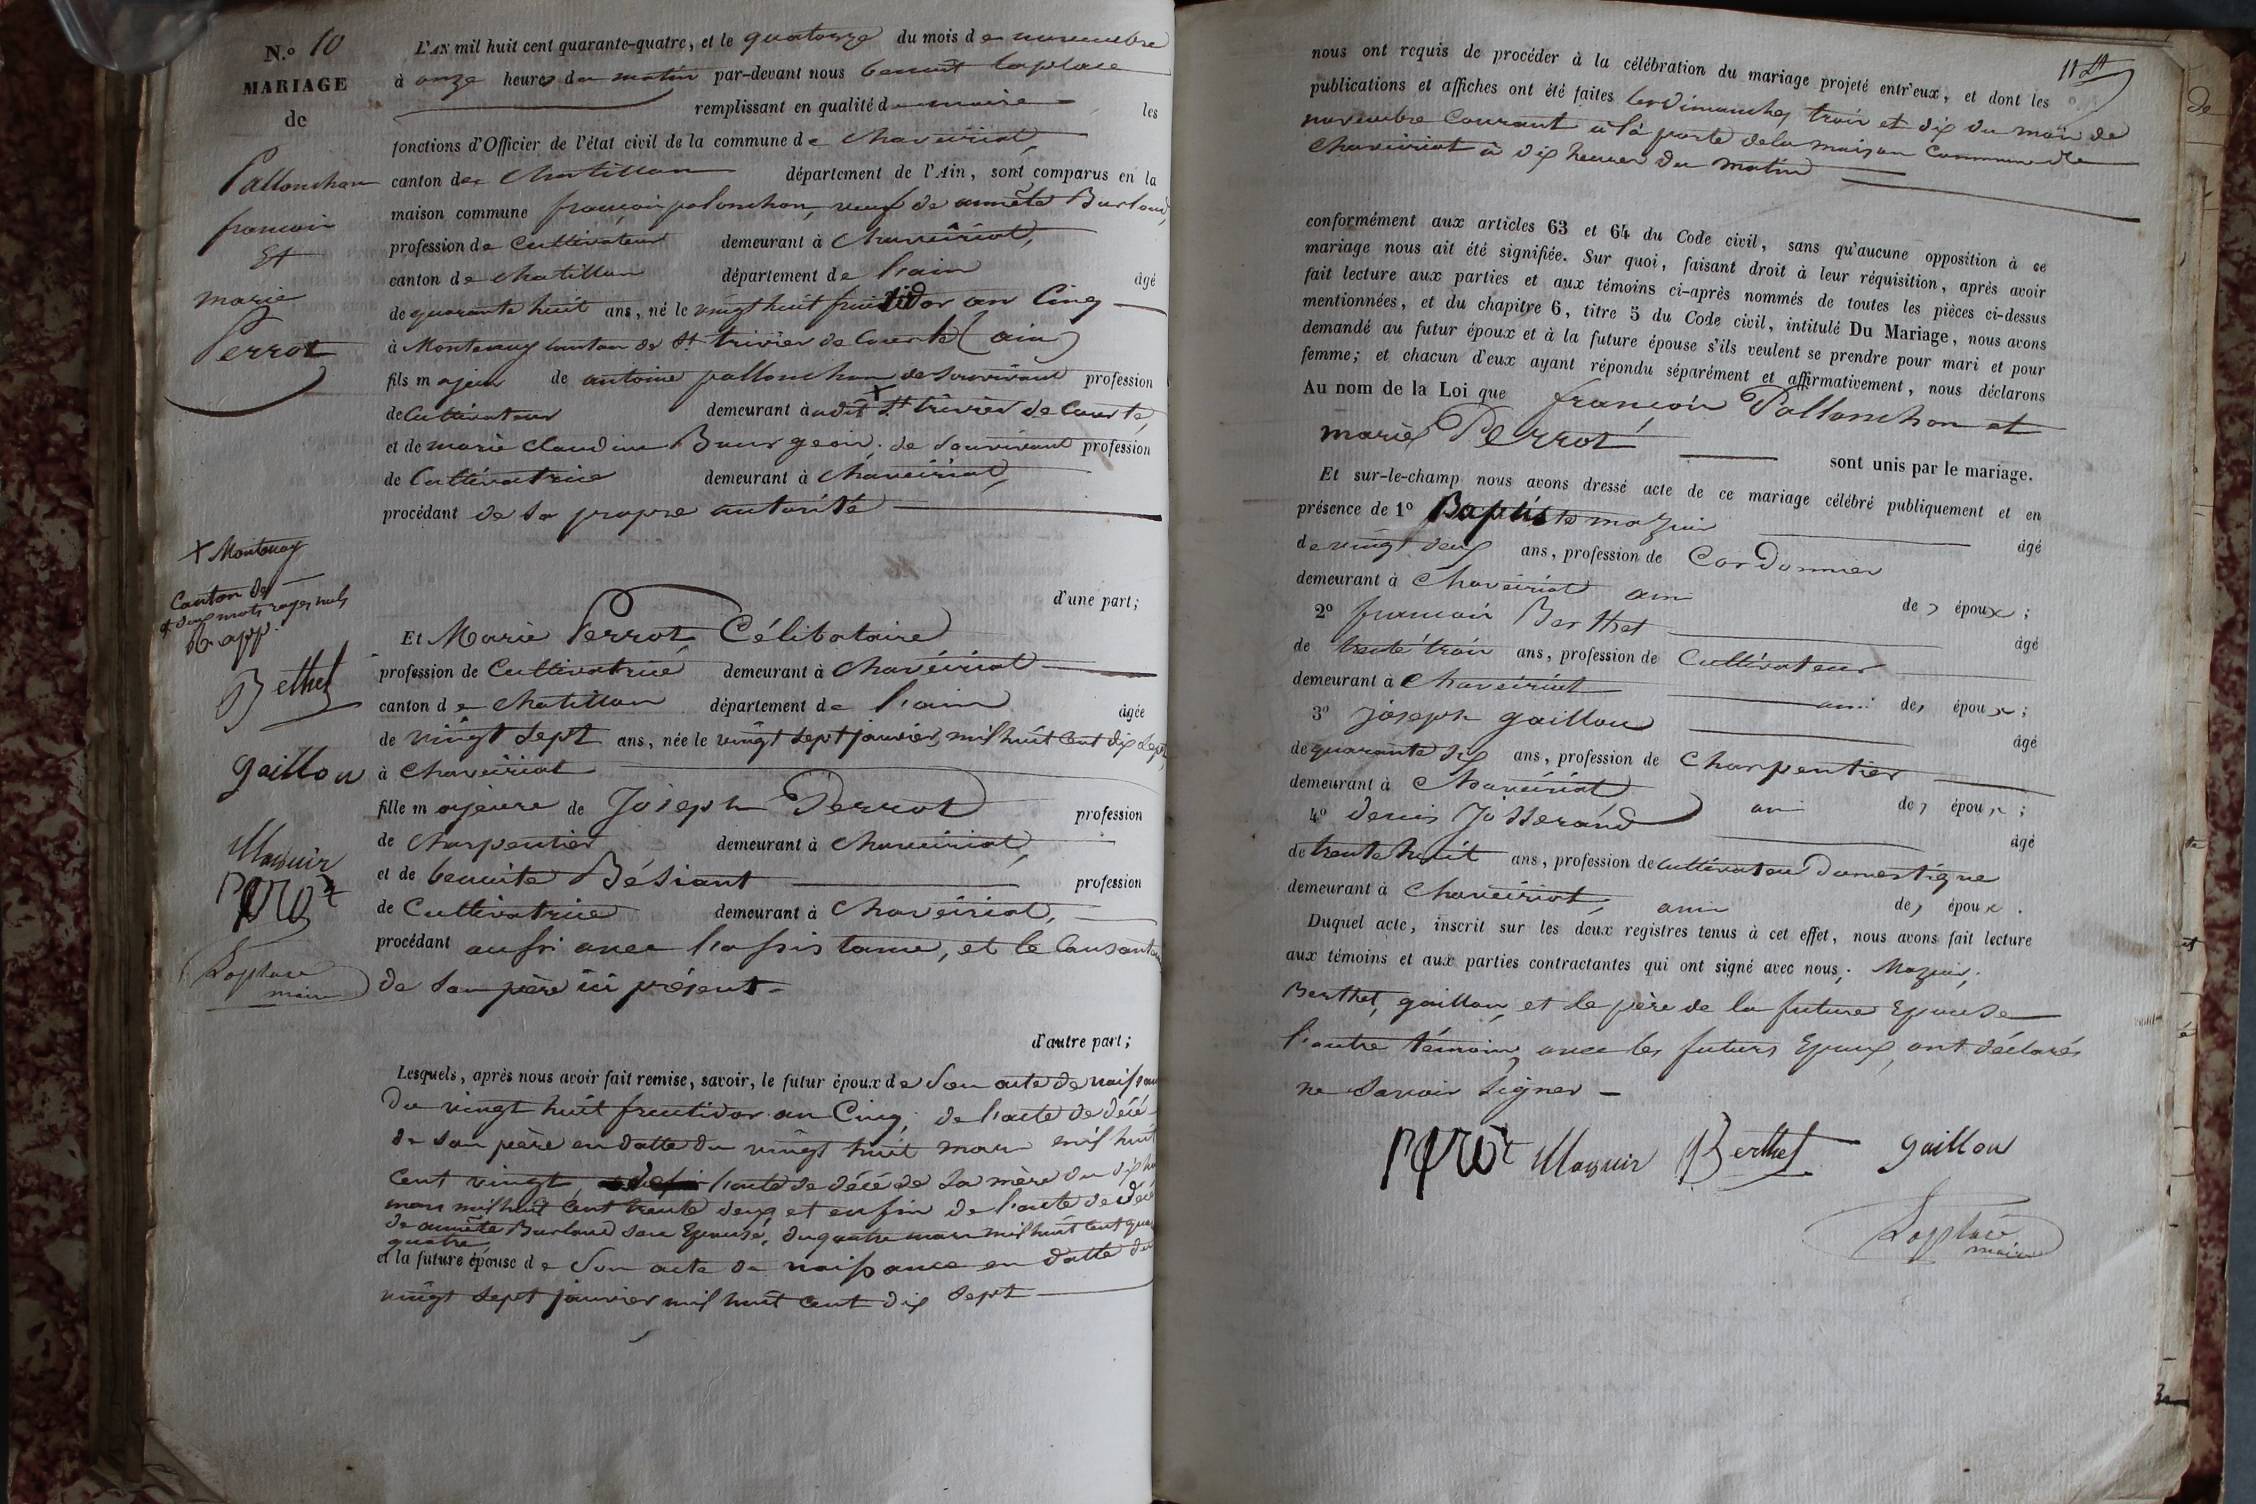 N.o 10
MARIAGE
de
Pallonchon
francois
Et
marie
Perrot
L'AN mil huit cent quarante-quatre, et le quatorze du mois de novembre
à onze heures du matin par-devant nous benoit laplace
remplissant en qualité de maire les
fonctions d'Officier de l'état civil de la commune de Chaveiriat,
canton de Chatillon département de l'Ain, sont comparus en la
maison commune françois palonchon, veuf de annéte Burland,
profession de Cultivateur demeurant à Chaveiriat,
canton de chatillon département de l'ain âgé
de quarante huit ans, né le vingt huit fructidor an Cinq
à Montenay Canton de St trivier de Courte (ain)
fils majeur de antoine pallonchon de Sourvivant profession
de Cultivateur demeurant à udit + St trivier de Courte,
et de marie Claudine Bourgeois, de Sourvivant profession
de Cultivatrice demeurant à chaveiriat,
procédant de Sa propre autorité
+ Montenay
Canton de
+ deux mots rayés nuls
ap.
Bethet
gaillon
Mazuir
perot
Laplace
maire
d'une part;
Et Marie Perrot Célibataire
profession de Cultivatrice demeurant à chavéiriat
canton de chatillon département de l'ain âgée
de vingt Sept ans, née le vingt Sept janvier mil huit Cent dix Sept,
à Chaveiriat
fille majeure de Joseph Perrot profession
de Charpentier demeurant à chaveiriat,
et de benoite Bésiant profession
de Cultivatrice demeurant à chaveiriat,
procédant aussi avec l'assistance, et le Consente
de Son père ici présent
d'autre part;
Lesquels, après nous avoir fait remise, savoir, le futur époux de Son acte de naissance
Du vingt huit fructidor an Cinq, de l'acte de décé
de Son père en datte du vingt huit mars mil huit
Cent vingt l'acte de décé de Sa mère du dix hu
mars mil huit Cent trente deux et enfin de l'acte de décé
de annéte Burland Son Epouse, du quatre mars mil huit Cent quar
quatre
et la future épouse de Son acte de naissance en datte du
vingt Sept janvier mil huit Cent dix Sept
nous ont requis de procéder à la célébration du mariage projeté entr'eux, et dont les
publications et affiches ont été faites les Dimanches trois et dix du mois de
novembre Courant à la porte de la maison Commune de
Chaveiriat à dix heures du matin
conformément aux articles 63 et 64 du Code civil, sans qu'aucune opposition à ce
mariage nous ait été signifiée. Sur quoi, faisant droit à leur réquisition, après avoir
fait lecture aux parties et aux témoins ci-après nommés de toutes les pièces ci-dessus
mentionnées, et du chapitre 6, titre 5 du Code civil, intitulé Du Mariage, nous avons
demandé au futur époux et à la future épouse s'ils veulent se prendre pour mari et pour
femme; et chacun d'eux ayant répondu séparément et affirmativement, nous déclarons
Au nom de la Loi que françois Pallonchon et
marie Perrot
sont unis par le mariage.
Et sur-le-champ nous avons dressé acte de ce mariage célébré publiquement et en
présence de 1o Baptiste mazuir âgé
de vingt deux ans, profession de Cordonnier
demeurant à Chaveiriat ami de, époux;
2o francois Berthet âgé
de trente trois ans, profession de Cultivateur
demeurant à Chaveiriat ami de, époux;
3o joseph gaillon âgé
de quarante six ans, profession de Charpentier
demeurant à Chaveiriat ami de, époux;
4o denis Josserand âgé
de trente huit ans, profession de Cultivateur Domestique
demeurant à Chaveiriat, ami de, époux.
Duquel acte, inscrit sur les deux registres tenus à cet effet, nous avons fait lecture
aux témoins et aux parties contractantes qui ont signé avec nous; Mazuir,
Berthet, gaillon, et le père de la future Epouse
l'autre témoin, avec les futurs Epoux, ont déclarés
ne Savoir Signer
perot Mazuir Berthet gaillon
Laplace
maire